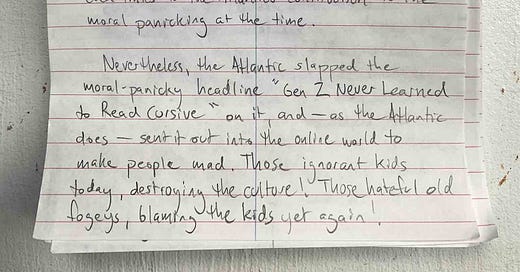 moral panicking at the time.
Nevertheless, the Atlantic slapped the
moral-panicky headline "Gen Z Never Learned
to Read Cursive" on it, and — as the Atlantic
does — sent it out into the online world to
make people mad. Those ignorant kids
today, destroying the culture! Those hateful old
fogeys, blaming the kids yet again!